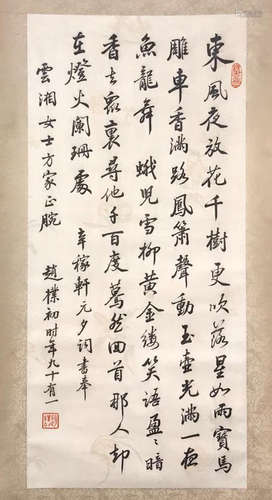 東風夜放花千樹更吹落星如雨寶馬
雕車香滿路鳳簫聲動玉壺光滿一夜
魚龍舞 蛾兒雪柳黃金縷笑語盈盈暗
香去衆裏尋他千百度驀然回首那人却
在燈火闌珊處 辛稼軒元夕詞書奉
雲湘女士方家正腕 趙樸初時年九十有一